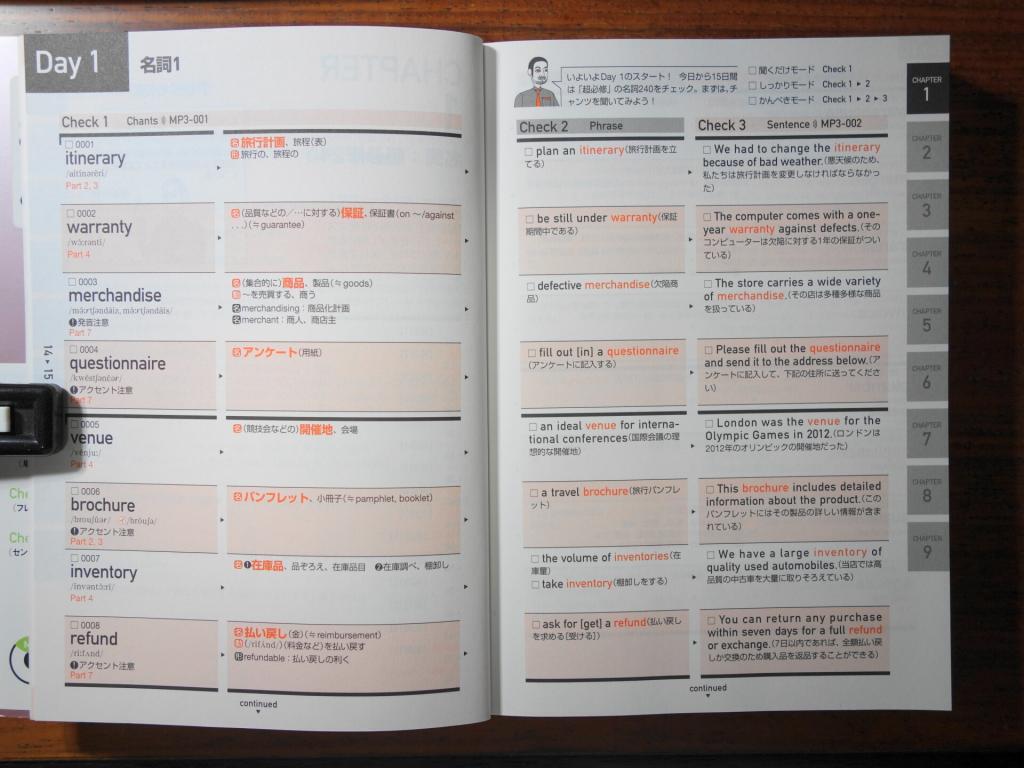 Day 1
名詞1
Check 1 Chants MP3-001
0001
itinerary
/aitínərèri/
Part 2, 3
名旅行計画、旅程(表)
形旅行の、旅程の
0002
warranty
/wɔ́:rənti/
Part 4
名(品質などの/…に対する)保証、保証書(on ～/against
...)(≒guarantee)
0003
merchandise
/mə́:rtʃəndàiz, mə́:rtʃəndàis/
❶発音注意
Part 7
名(集合的に)商品、製品(≒goods)
動～を売買する、商う
名merchandising:商品化計画
名merchant:商人、商店主
0004
questionnaire
/kwèstʃənéər/
❶アクセント注意
Part 7
名アンケート(用紙)
14 ▸ 15
0005
venue
/vénju:/
Part 4
名(競技会などの)開催地、会場
0006
brochure
/brouʃúər/ /bróuʃə/
❶アクセント注意
Part 2, 3
名パンフレット、小冊子(≒pamphlet, booklet)
0007
inventory
/ínvəntɔ̀:ri/
Part 4
名❶在庫品、品ぞろえ、在庫品目 ❷在庫調べ、棚卸し
0008
refund
/rí:fʌnd/
❶アクセント注意
Part 7
名払い戻し(金)(≒reimbursement)
動(/rifʌ́nd/)(料金など)を払い戻す
形refundable:払い戻しの利く
continued
いよいよDay 1のスタート! 今日から15日間
は「超必修」の名詞240をチェック。まずは、チ
ャンツを聞いてみよう!
聞くだけモード Check 1
しっかりモード Check 1 ▸ 2
かんぺきモード Check 1 ▸ 2 ▸ 3
Check 2 Phrase
Check 3 Sentence MP3-002
plan an itinerary(旅行計画を立
てる)
We had to change the itinerary
because of bad weather.(悪天候のため、
私たちは旅行計画を変更しなければならなかっ
た)
be still under warranty(保証
期間中である)
The computer comes with a one-
year warranty against defects.(その
コンピューターは欠陥に対する1年の保証がつい
ている)
defective merchandise(欠陥商
品)
The store carries a wide variety
of merchandise.(その店は多種多様な商品
を扱っている)
fill out [in] a questionnaire
(アンケートに記入する)
Please fill out the questionnaire
and send it to the address below.(ア
ンケートに記入して、下記の住所に送ってくださ
い)
an ideal venue for interna-
tional conferences(国際会議の理
想的な開催地)
London was the venue for the
Olympic Games in 2012.(ロンドンは
2012年のオリンピックの開催地だった)
a travel brochure(旅行パンフレ
ット)
This brochure includes detailed
information about the product.(この
パンフレットにはその製品の詳しい情報が含ま
れている)
the volume of inventories(在
庫量)
take inventory(棚卸しをする)
We have a large inventory of
quality used automobiles.(当店では高
品質の中古車を大量に取りそろえている)
ask for [get] a refund(払い戻し
を求める[受ける])
You can return any purchase
within seven days for a full refund
or exchange.(7日以内であれば、全額払い戻
しか交換のため購入品を返品することができる)
continued
CHAPTER
1
CHAPTER
2
CHAPTER
3
CHAPTER
4
CHAPTER
5
CHAPTER
6
CHAPTER
7
CHAPTER
8
CHAPTER
9